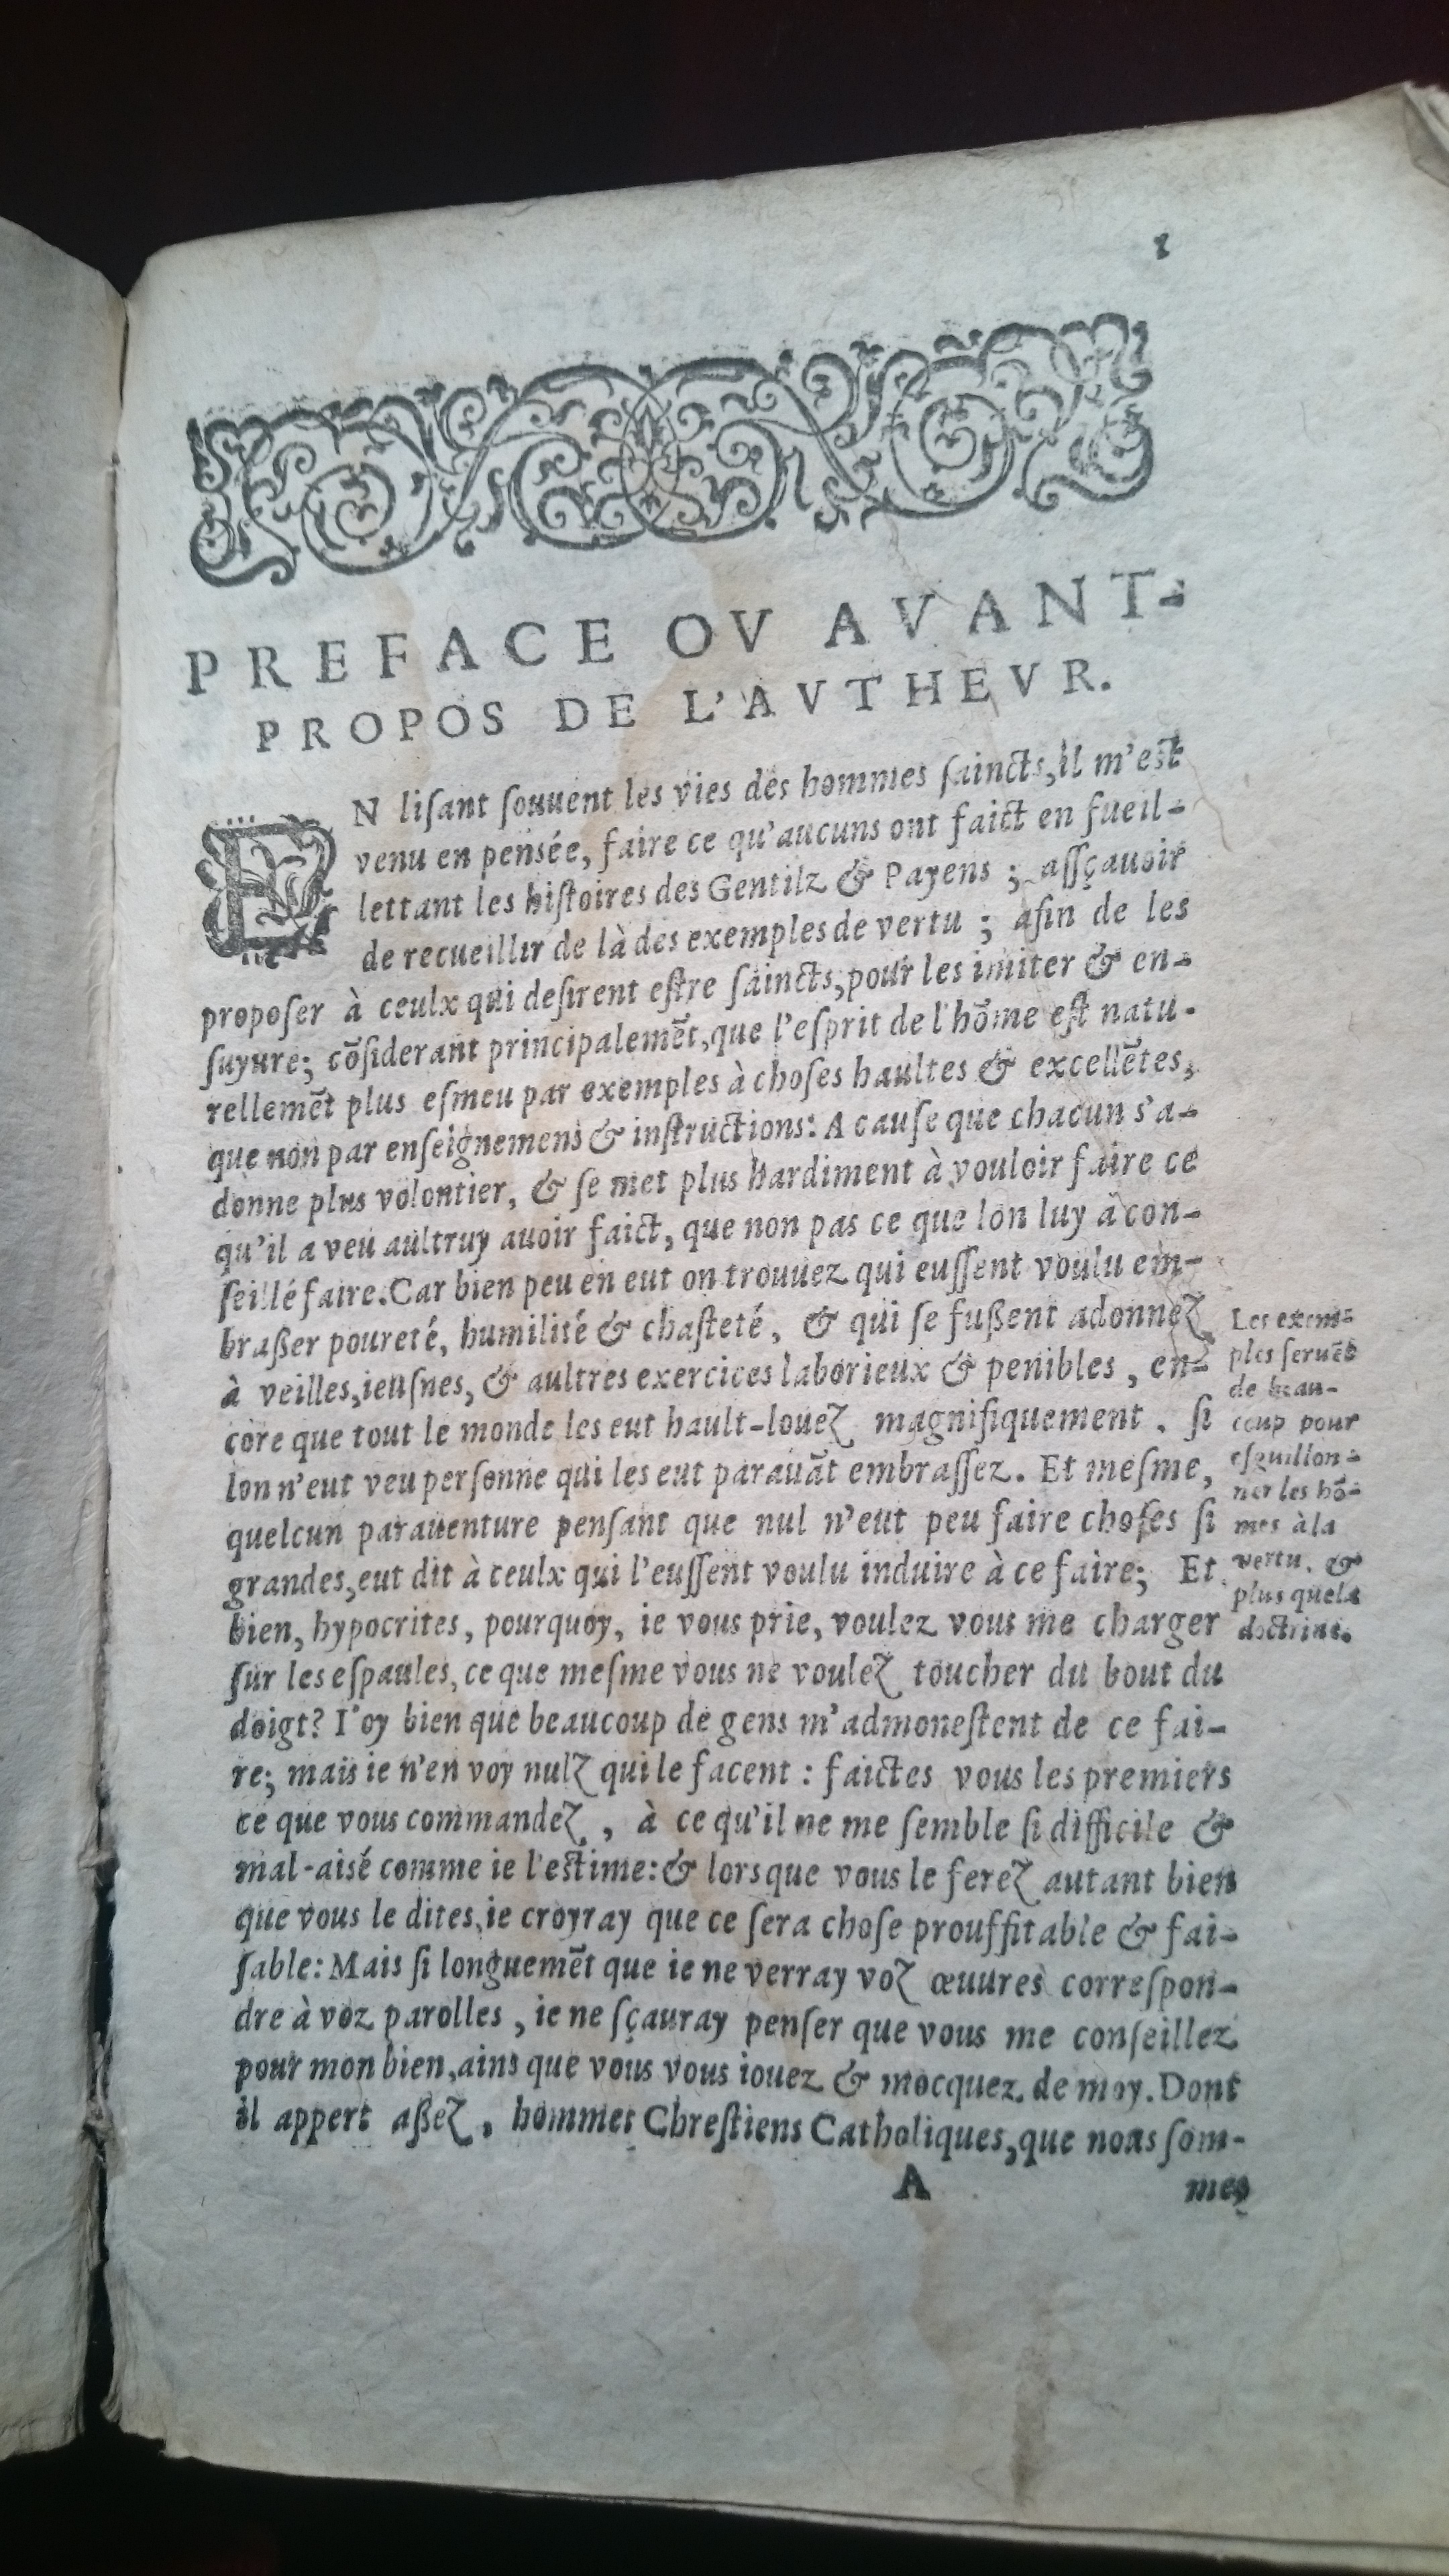 1
PREFACE OV AVANT-
PROPOS DE L'AVTHEVR.
EN liſant ſouuent les vies des hommes ſaincts, il m'eſt
venu en pensée, faire ce qu'aucuns ont faict en fueil-
lettant les hiſtoires des Gentilz & Payens ; aſſçauoir
de recueillir de là des exemples de vertu ; afin de les
propoſer à ceulx qui deſirent eſtre ſaincts, pour les imiter & en-
ſuyure; cõſiderant principalemẽt, que l'eſprit de l'hõme eſt natu-
rellemẽt plus eſmeu par exemples à choſes haultes & excellẽtes,
que non par enſeignemens & inſtructions: A cauſe que chacun s'a-
donne plus volontier, & ſe met plus hardiment à vouloir faire ce
qu'il a veu aultruy auoir faict, que non pas ce que lon luy à con-
ſeillé faire. Car bien peu en eut on trouuez qui euſſent voulu em-
braßer poureté, humilité & chaſteté, & qui ſe fußent adonnez
à veilles, ieuſnes, & aultres exercices laborieux & penibles, en-
core que tout le monde les eut hault-louez magnifiquement, ſi
lon n'eut veu perſonne qui les eut parauãt embraſſez. Et meſme,
quelcun parauenture penſant que nul n'eut peu faire choſes ſi
grandes, eut dit à ceulx qui l'euſſent voulu induire à ce faire; Et
bien, hypocrites, pourquoy, ie vous prie, voulez vous me charger
ſur les eſpaules, ce que meſme vous ne voulez toucher du bout du
doigt? I'oy bien que beaucoup de gens m'admoneſtent de ce fai-
re; mais ie n'en voy nulz qui le facent : faictes vous les premiers
ce que vous commandez, à ce qu'il ne me ſemble ſi difficile &
mal-aisé comme ie l'eſtime: & lors que vous le ferez autant bien
que vous le dites, ie croyray que ce ſera choſe prouffitable & fai-
ſable: Mais ſi longuemẽt que ie ne verray voz œuures correſpon-
dre à voz parolles, ie ne ſçauray penſer que vous me conſeillez
pour mon bien, ains que vous vous iouez & mocquez de moy. Dont
il appert aßez, hommes Chreſtiens Catholiques, que nous ſom-
A mes
Les exem-
ples ſeruẽt
de beau-
coup pour
eſguillon-
ner les hõ-
mes à la
vertu, &
plus que la
doctrine.